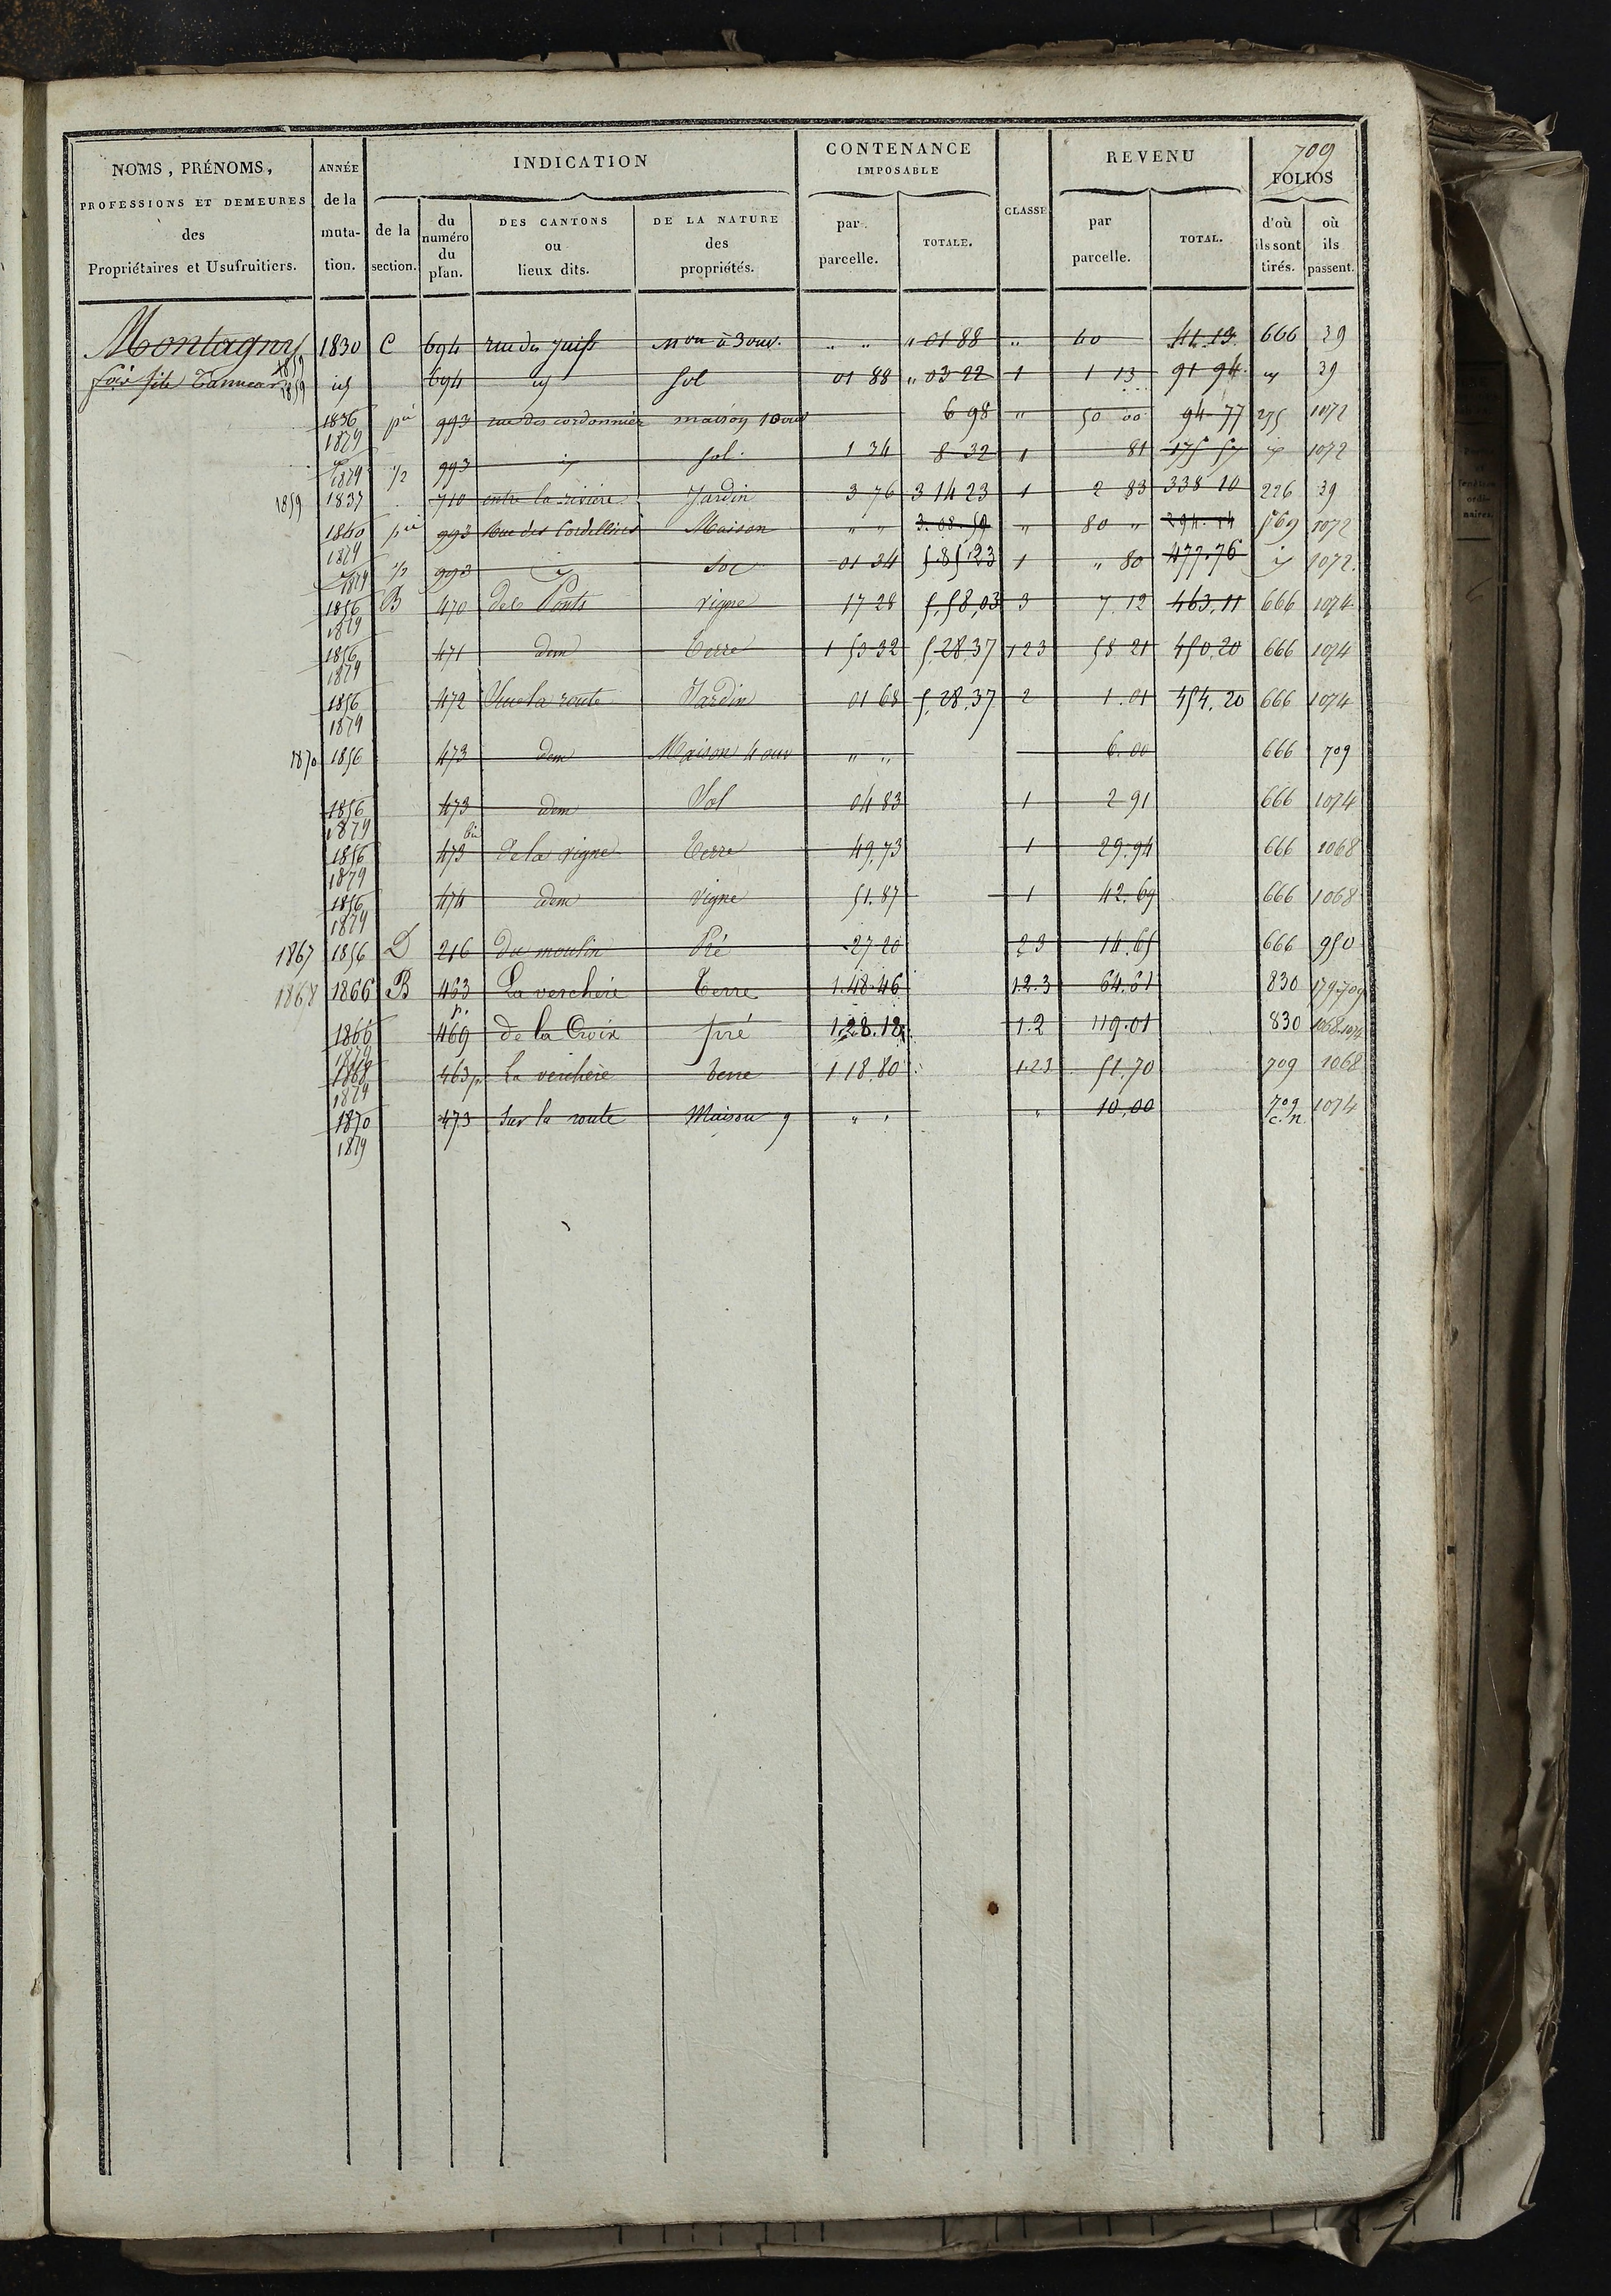 709
NOMS, PRÉNOMS, PROFESSIONS ET DEMEURES des Propriétaires et Usufruitiers.
ANNÉE de la muta- tion.
INDICATION
de la section.
du numéro du plan.
DES CANTONS ou lieux dits.
DE LA NATURE des propriétés.
CONTENANCE IMPOSABLE
par parcelle.
TOTALE.
CLASSE
REVENU
par parcelle.
TOTAL.
FOLIOS
d'où ils sont tirés.
où ils passent.
Montagny 1859 1830 C 694 rue des Juifs 3 ouv. " " " 01 88 " 40 41.13 666 39
fils Tanneur 1859 id 694 id Sol 01 88 " 03 22 1 1 13 91 94 id 39
1836 1879 pie 993 rue des cordonnier maison 10 ouv 6 98 " 50 00 94 77 275 1072
1879 1/2 993 id Sol 1 34 8 32 1 81 175 57 id 1072
1859 1837 710 entre la rivière Jardin 3 76 3 14 23 1 2 83 338 10 226 39
1840 1879 pie 993 Rue des Cordelliers Maison " " 3.08.59 " 80 " 294.14 569 1072
1879 1/2 993 id Sol 01 34 5.85.23 1 " 80 477.76 id 1072
1856 1879 B 470 des Ponts vigne 17 28 5.58.03 3 7.12 463.11 666 1074
1856 1879 471 dem Terre 1 53 32 5.28.37 1 2 3 58 21 450.20 666 1074
1856 1879 472 Sur la route Jardin 01 68 5.28.37 2 1.01 454.20 666 1074
1870 1856 473 dem Maison 4 ouv " " 6.00 666 709
1856 1879 473 dem Sol 04 83 1 2 91 666 1074
1856 1879 473 bis de la vigne Terre 49.73 1 29.94 666 1068
1856 1879 474 dem Vigne 51.87 1 42.69 666 1068
1867 1856 D 216 du moulin Pré 27 20 2 3 14.65 666 950
1868 1866 B 463 La verchère Terre 1.48.46 1.2.3 64.61 830 179.709
1866 1879 p. 469 de la Croix pré 1.28.18 1.2 119.01 830 1068.1074
1868 1879 463 p. La verchère terre 1 18.80 1.2.3 51.70 709 1068
1870 1879 473 Sur la route Maison 9 " " " 10.00 709 c.n. 1074